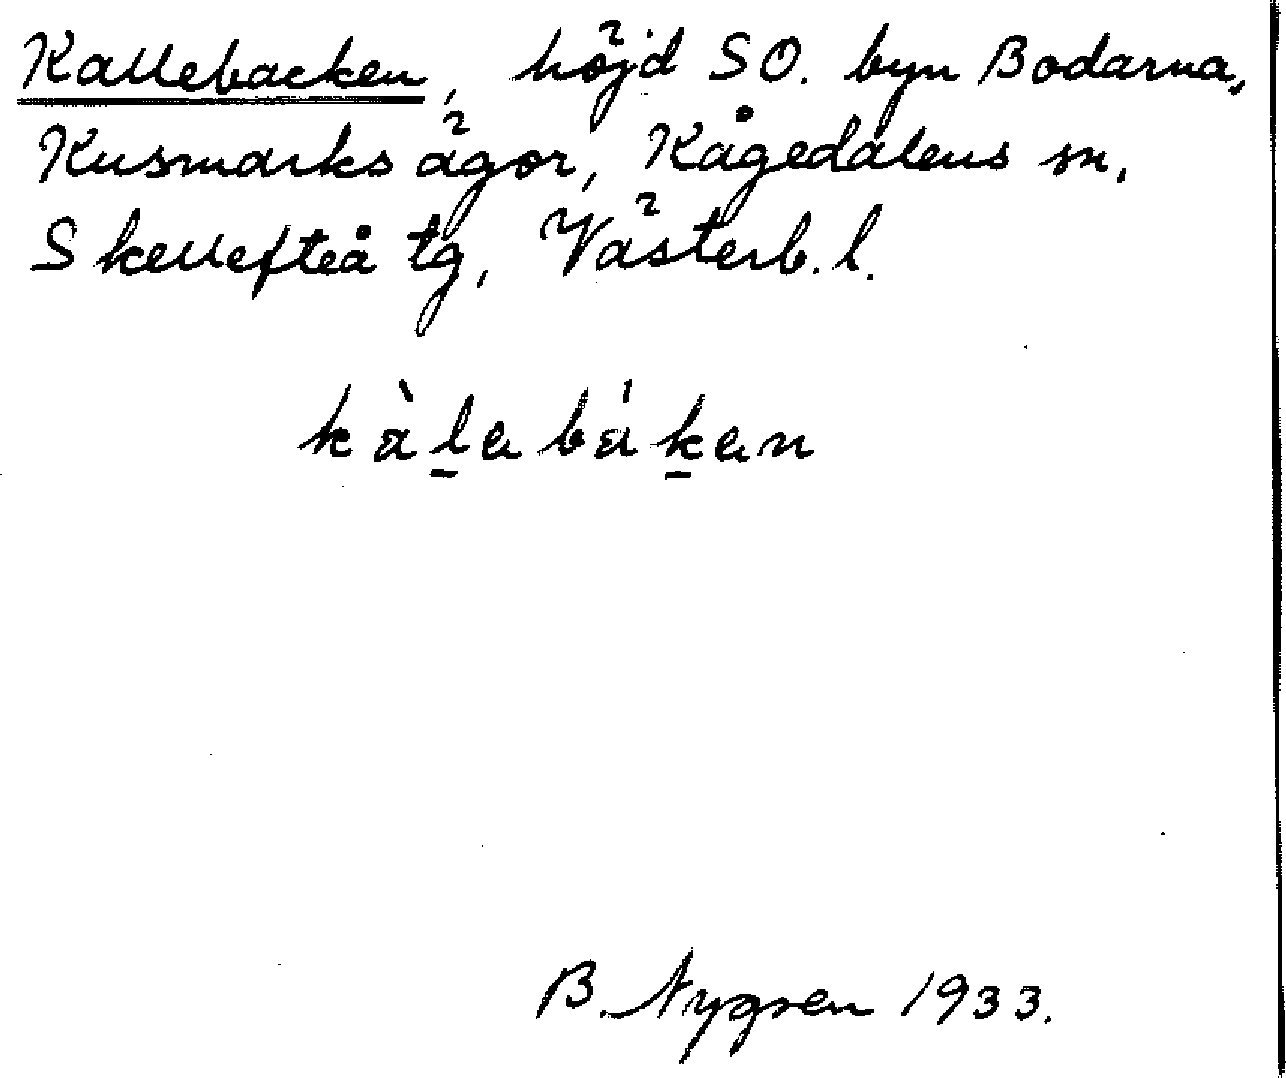 Kallebacken, höjd SO. byn Bodarna,
Kusmarks ägor, Kågedalens sn,
Skellefteå tg, Västerb. l.
kàl̲abákan
B. Nygren 1933.